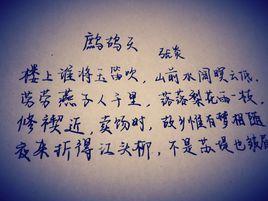 鹧鸪天
张炎
楼上谁将玉笛吹，山前水阔暝云低，
劳劳燕子人千里，落落梨花雨一枝，
修禊近，卖饧时，故乡惟有梦相随
夜来折得江头柳，不是苏堤也皱眉